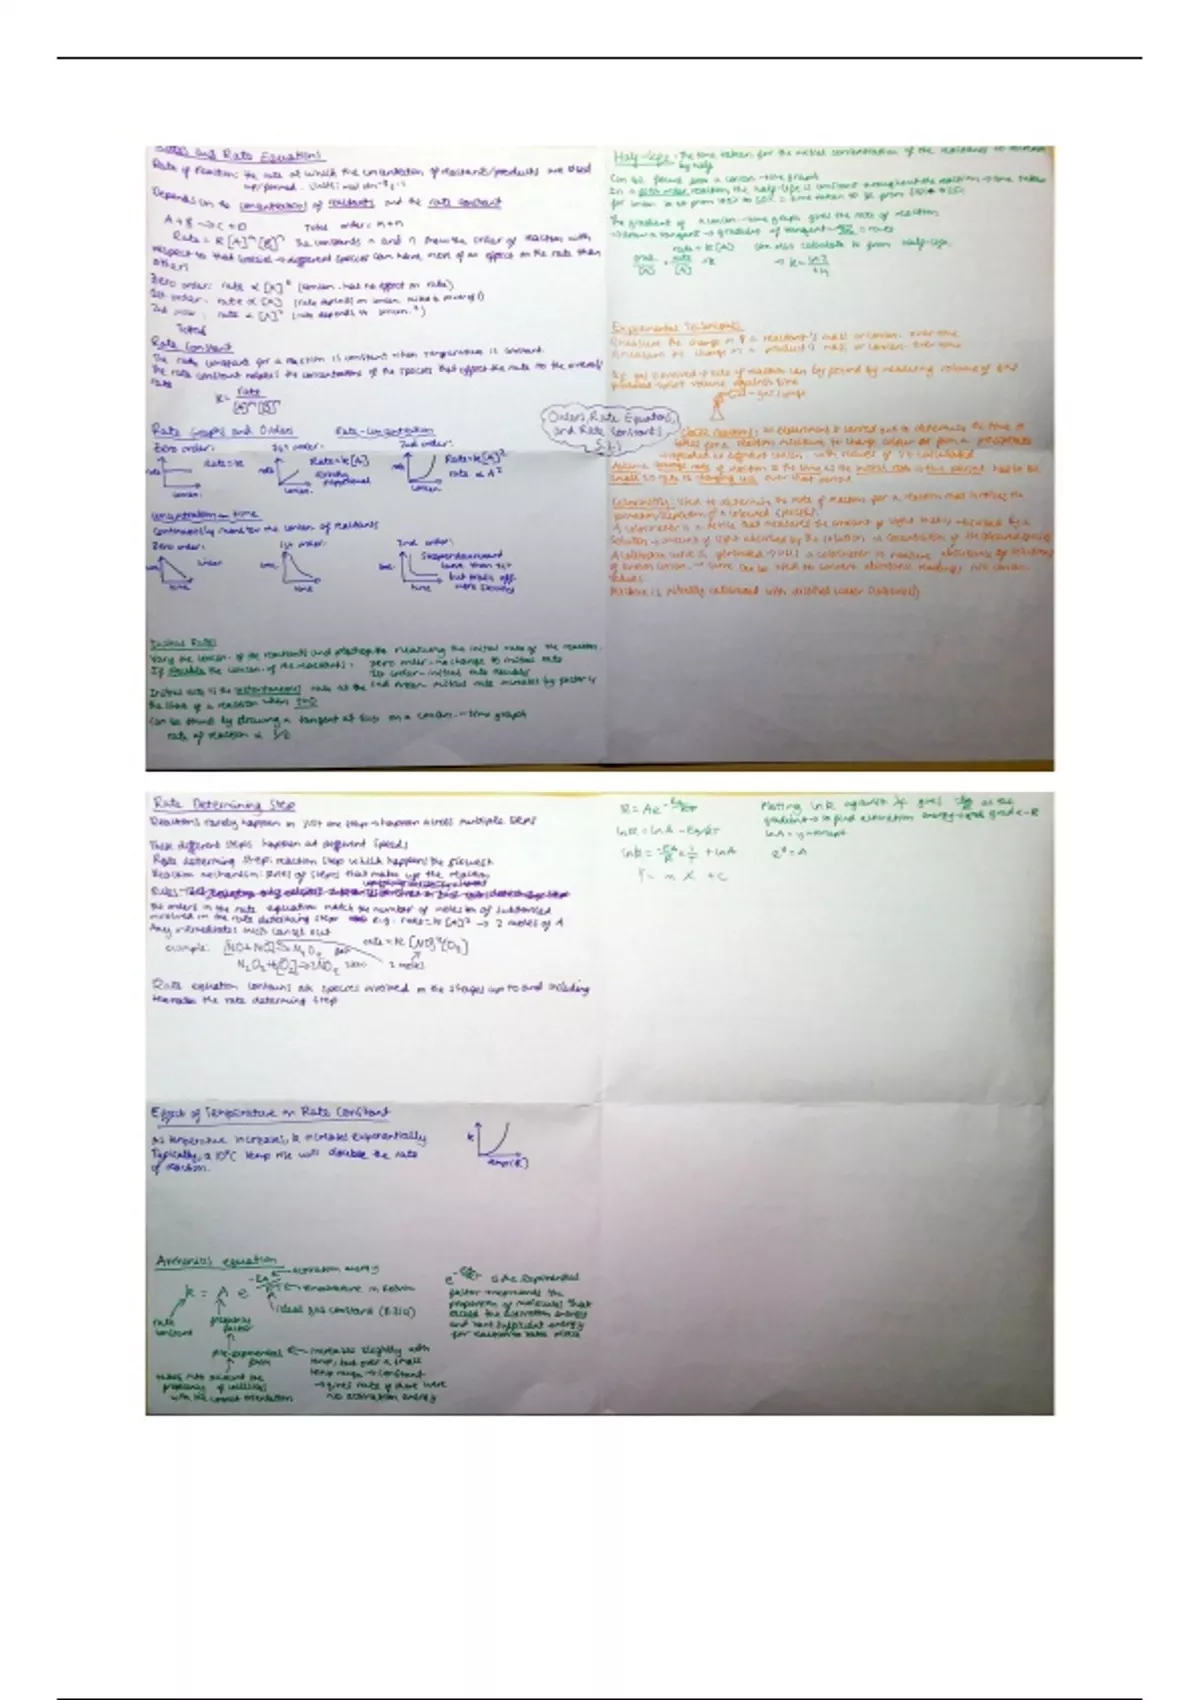 Rates and Rate Equations
Rate of reaction: the rate at which the concentration of reactants/products are used
up/formed. Units: mol dm⁻³ s⁻¹
Depends on the concentrations of reactants and the rate constant
A + B → C + D Total order: m+n
Rate = k [A]ᵐ [B]ⁿ The constants m and n show the order of reaction with
respect to that species → different species can have more of an effect on the rate than
others
Zero order: rate ∝ [A]⁰ (concen. has no effect on rate)
1st order: rate ∝ [A] (rate depends on concen. raised to power of 1)
2nd order: rate ∝ [A]² (rate depends on concen.²)
Rate Constant
The rate constant for a reaction is constant when temperature is constant.
The rate constant relates the concentrations of the species that affect the rate to the overall
rate
k = rate
[A]ᵐ[B]ⁿ
Rate Graphs and Orders Rate-concentration
Zero order: 1st order: 2nd order:
rate Rate=k rate Rate=k[A] rate Rate=k[A]²
proportional rate ∝ A²
concen. concen. concen.
Concentration-time
Continuously monitor the concen of reactants
Zero order: 1st order: 2nd order:
conc. linear conc. conc. Steeper downward
curve than 1st
but tails off
more slowly
time time time
Initial Rates
Vary the concen. of the reactants and measuring the initial rate of the reaction.
If double the concen. of the reactants: zero order - no change to initial rate
1st order - initial rate doubles
2nd order - initial rate increases by factor 4
Initial rate is the instantaneous rate at the
the start of a reaction when t=0
Can be found by drawing a tangent at t=0 on a concen.-time graph
rate of reaction ∝ 1/t
Half-life: the time taken for the initial concentration of the reactants to decrease
by half
Can be found from a concen-time graph
In a first order reaction, the half-life is constant throughout the reaction → time taken
for concen to go from 100% to 50% = time taken to go from 50% → 25%
The gradient of a concen-time graph gives the rate of reaction
→ draw a tangent → gradient of tangent = rate
rate = k[A] can also calculate k from half-life.
rate = k → k = ln2
[A]
Experimental Techniques
measure the change in a reactant's mass or concen. over time
measure the change in a product's mass or concen. over time
If gas is evolved → rate of reaction can be found by measuring volume of gas
produced → plot volume against time
gas syringe
Orders, Rate Equations
and Rate Constants
5.1.1
Clock reactions: an experiment is carried out to determine the time it
takes for a reaction mixture to change colour or form a precipitate
→ repeated at different concen. with values of 1/t calculated
small so rate is over that period
Colorimetry: used to determine the rate of reaction for a reaction that involves the
formation/depletion of a coloured species.
A colorimeter is a device that measures the amount of light that is absorbed by a
solution → amount of light absorbed by the solution ∝ concentration of the coloured species
A calibration curve is generated → uses a colorimeter to measure absorbance of solutions
of known concen. → curve can be used to convert absorbance readings into concen
values.
Machine is initially calibrated with distilled water
Rate Determining Step
Reactions rarely happen in just one step → happen across multiple steps
These different steps happen at different speeds
Rate determining step: reaction step which happens the slowest
Reaction mechanism: series of steps that make up the reaction
the orders in the rate equation match the number of moles of substance
involved in the rate determining step e.g. rate=k[A]² → 2 moles of A
Any intermediates must cancel out
example: NO + NO → N₂O₂ fast rate = k [NO]²[O₂]
N₂O₂ + O₂ → 2NO₂ slow 2 moles
Rate equation contains all species involved in the stages up to and including
the rate determining step
Effect of Temperature on Rate Constant
As temperature increases, k increases exponentially
Typically, a 10°C temp rise will double the rate
of reaction.
k
temp(K)
Arrhenius equation
activation energy
k = A e -Ea/RT temperature in Kelvin
ideal gas constant (8.314)
rate
constant
frequency
factor
pre-exponential ← increases slightly with
temp, but over a small
temp range → constant
→ gives rate if there were
no activation energy
takes into account the
frequency of collisions
with the correct orientation
is the exponential
factor → represents the
proportion of molecules that
exceed the activation energy
and have sufficient energy
for reaction to take place
k = Ae -Ea/RT
lnk = lnA - Ea/RT
lnk = -Ea/R × 1/T + lnA
Y = m X + c
Plotting lnk against 1/T gives -Ea/R as the
gradient → to find activation energy
lnA = y-intercept